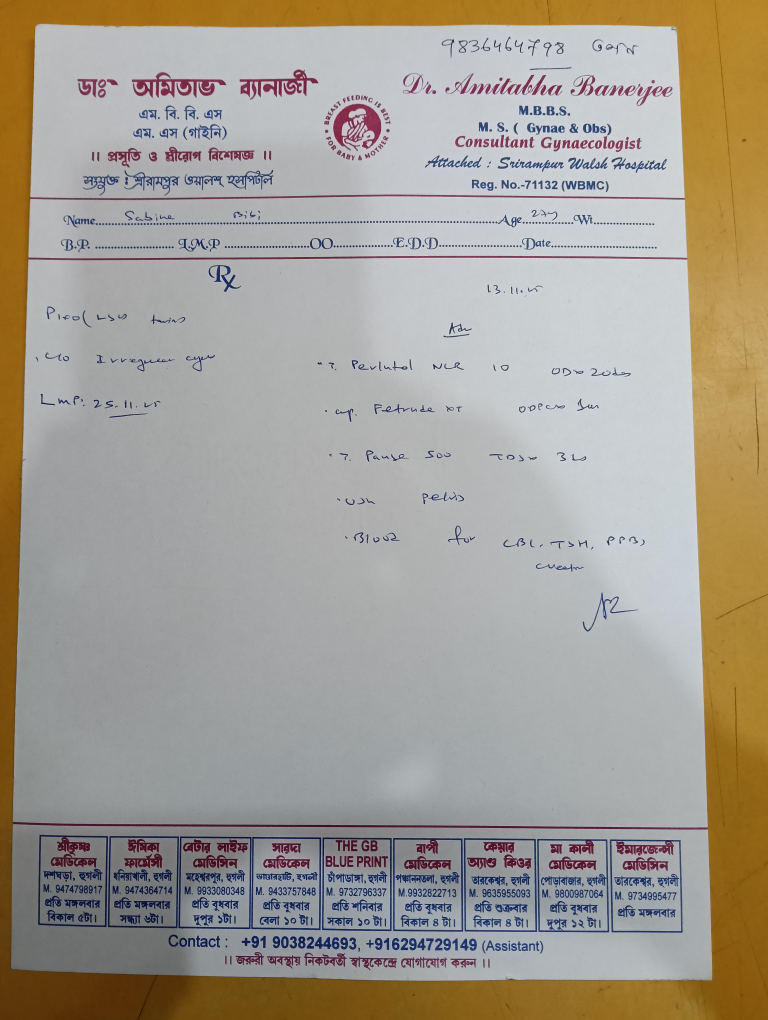 9836464798
ডাঃ অমিতাভ ব্যানার্জী
এম. বি. বি. এস
এম. এস (গাইনি)
।। প্রসূতি ও স্ত্রীরোগ বিশেষজ্ঞ ।।
সংযুক্ত : শ্রীরামপুর ওয়ালশ্ হসপিটাল
BREAST FEEDING IS BEST
FOR BABY & MOTHER
Dr. Amitabha Banerjee
M.B.B.S.
M. S. ( Gynae & Obs)
Consultant Gynaecologist
Attached : Srirampur Walsh Hospital
Reg. No.-71132 (WBMC)
Name Bibi Age 27y Wt
B.P. L.M.P OO E.D.D Date
Rx
13.11.25
twins
c/o Irregular
LMP: 25.11.25
Adv
T. NCR 10 OD x
cap. XT
T. Pause 500 TDS x
USG Pelvis
Blood for CBC, TSH,
শ্রীকৃষ্ণ মেডিকেল
দশঘড়া, হুগলী
M. 9474798917
প্রতি মঙ্গলবার
বিকাল ৫টা।
ঈশিকা ফার্মেসী
ধনিয়াখালী, হুগলী
M. 9474364714
প্রতি মঙ্গলবার
সন্ধ্যা ৬টা।
বেটার লাইফ মেডিসিন
মহেশ্বরপুর, হুগলী
M. 9933080348
প্রতি বুধবার
দুপুর ১টা।
সারদা মেডিকেল
হুগলী
M. 9433757848
প্রতি বুধবার
বেলা ১০ টা।
THE GB BLUE PRINT
চাঁপাডাঙ্গা, হুগলী
M. 9732796337
প্রতি শনিবার
সকাল ১০ টা।
বাপী মেডিকেল
পঞ্চাননতলা, হুগলী
M. 9932822713
প্রতি বুধবার
বিকাল ৪ টা।
কেয়ার অ্যাণ্ড কিওর
তারকেশ্বর, হুগলী
M. 9635955093
প্রতি শুক্রবার
বিকাল ৪ টা।
মা কালী মেডিকেল
পোড়াবাজার, হুগলী
M. 9800987064
প্রতি বুধবার
দুপুর ১২ টা।
ইমারজেন্সী মেডিসিন
তারকেশ্বর, হুগলী
M. 9734995477
প্রতি মঙ্গলবার
Contact : +91 9038244693, +916294729149 (Assistant)
।। জরুরী অবস্থায় নিকটবর্তী স্বাস্থ্যকেন্দ্রে যোগাযোগ করুন ।।